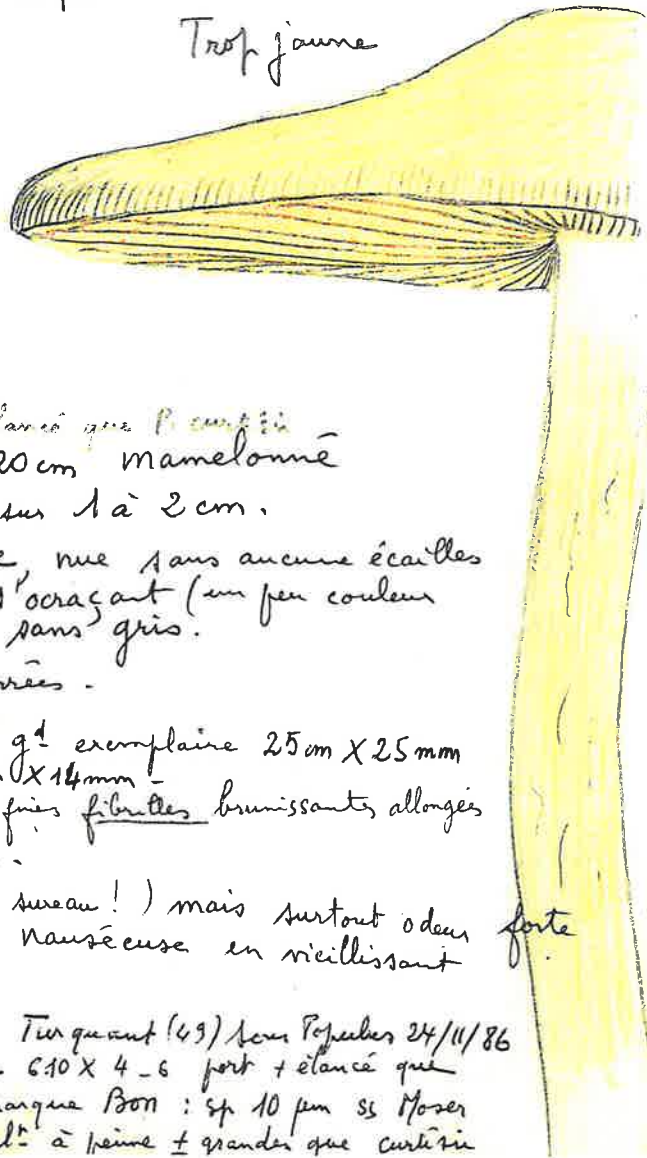 Trop jaune
lancé que P. curtisii
20 cm mamelonné
sur 1 à 2 cm.
nue sans aucune écailles
ocraçant (un peu couleur
sans gris.
rrées.
gd exemplaire 25 cm X 25 mm
X 14 mm -
fines fibrilles brunissantes allongées
sureau ! ) mais surtout odeur forte
nauséeuse en vieillissant
Turquant (49) sous Populus 24/11/86
6.10 X 4_6 port + élancé que
arque Bon : sp 10 µm ss Moser
à peine ± grandes que curtisii